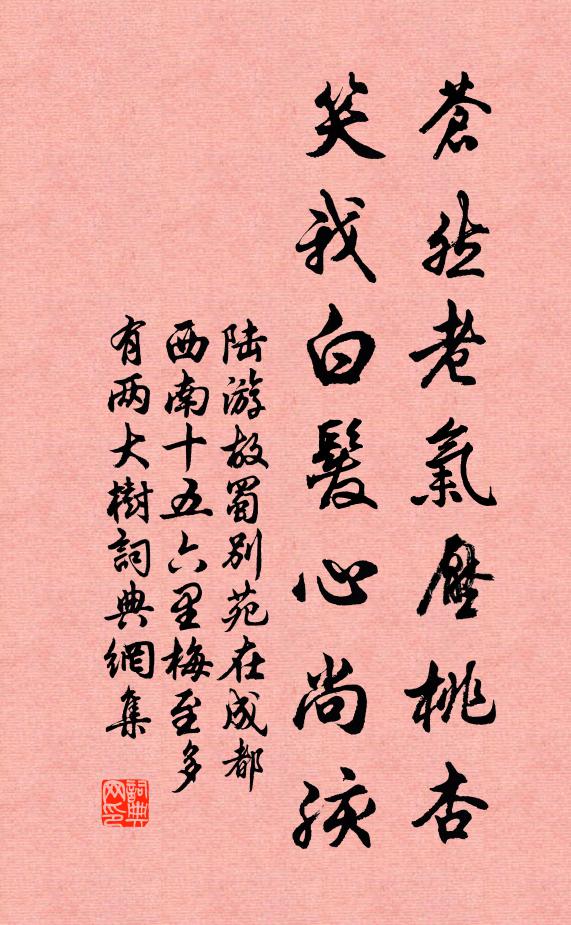 蒼然老氣壓桃杏
笑我白髮心尚孩
陆游故蜀别苑在成都
西南十五六里梅至多
有两大樹詞典網集
詞典
网印